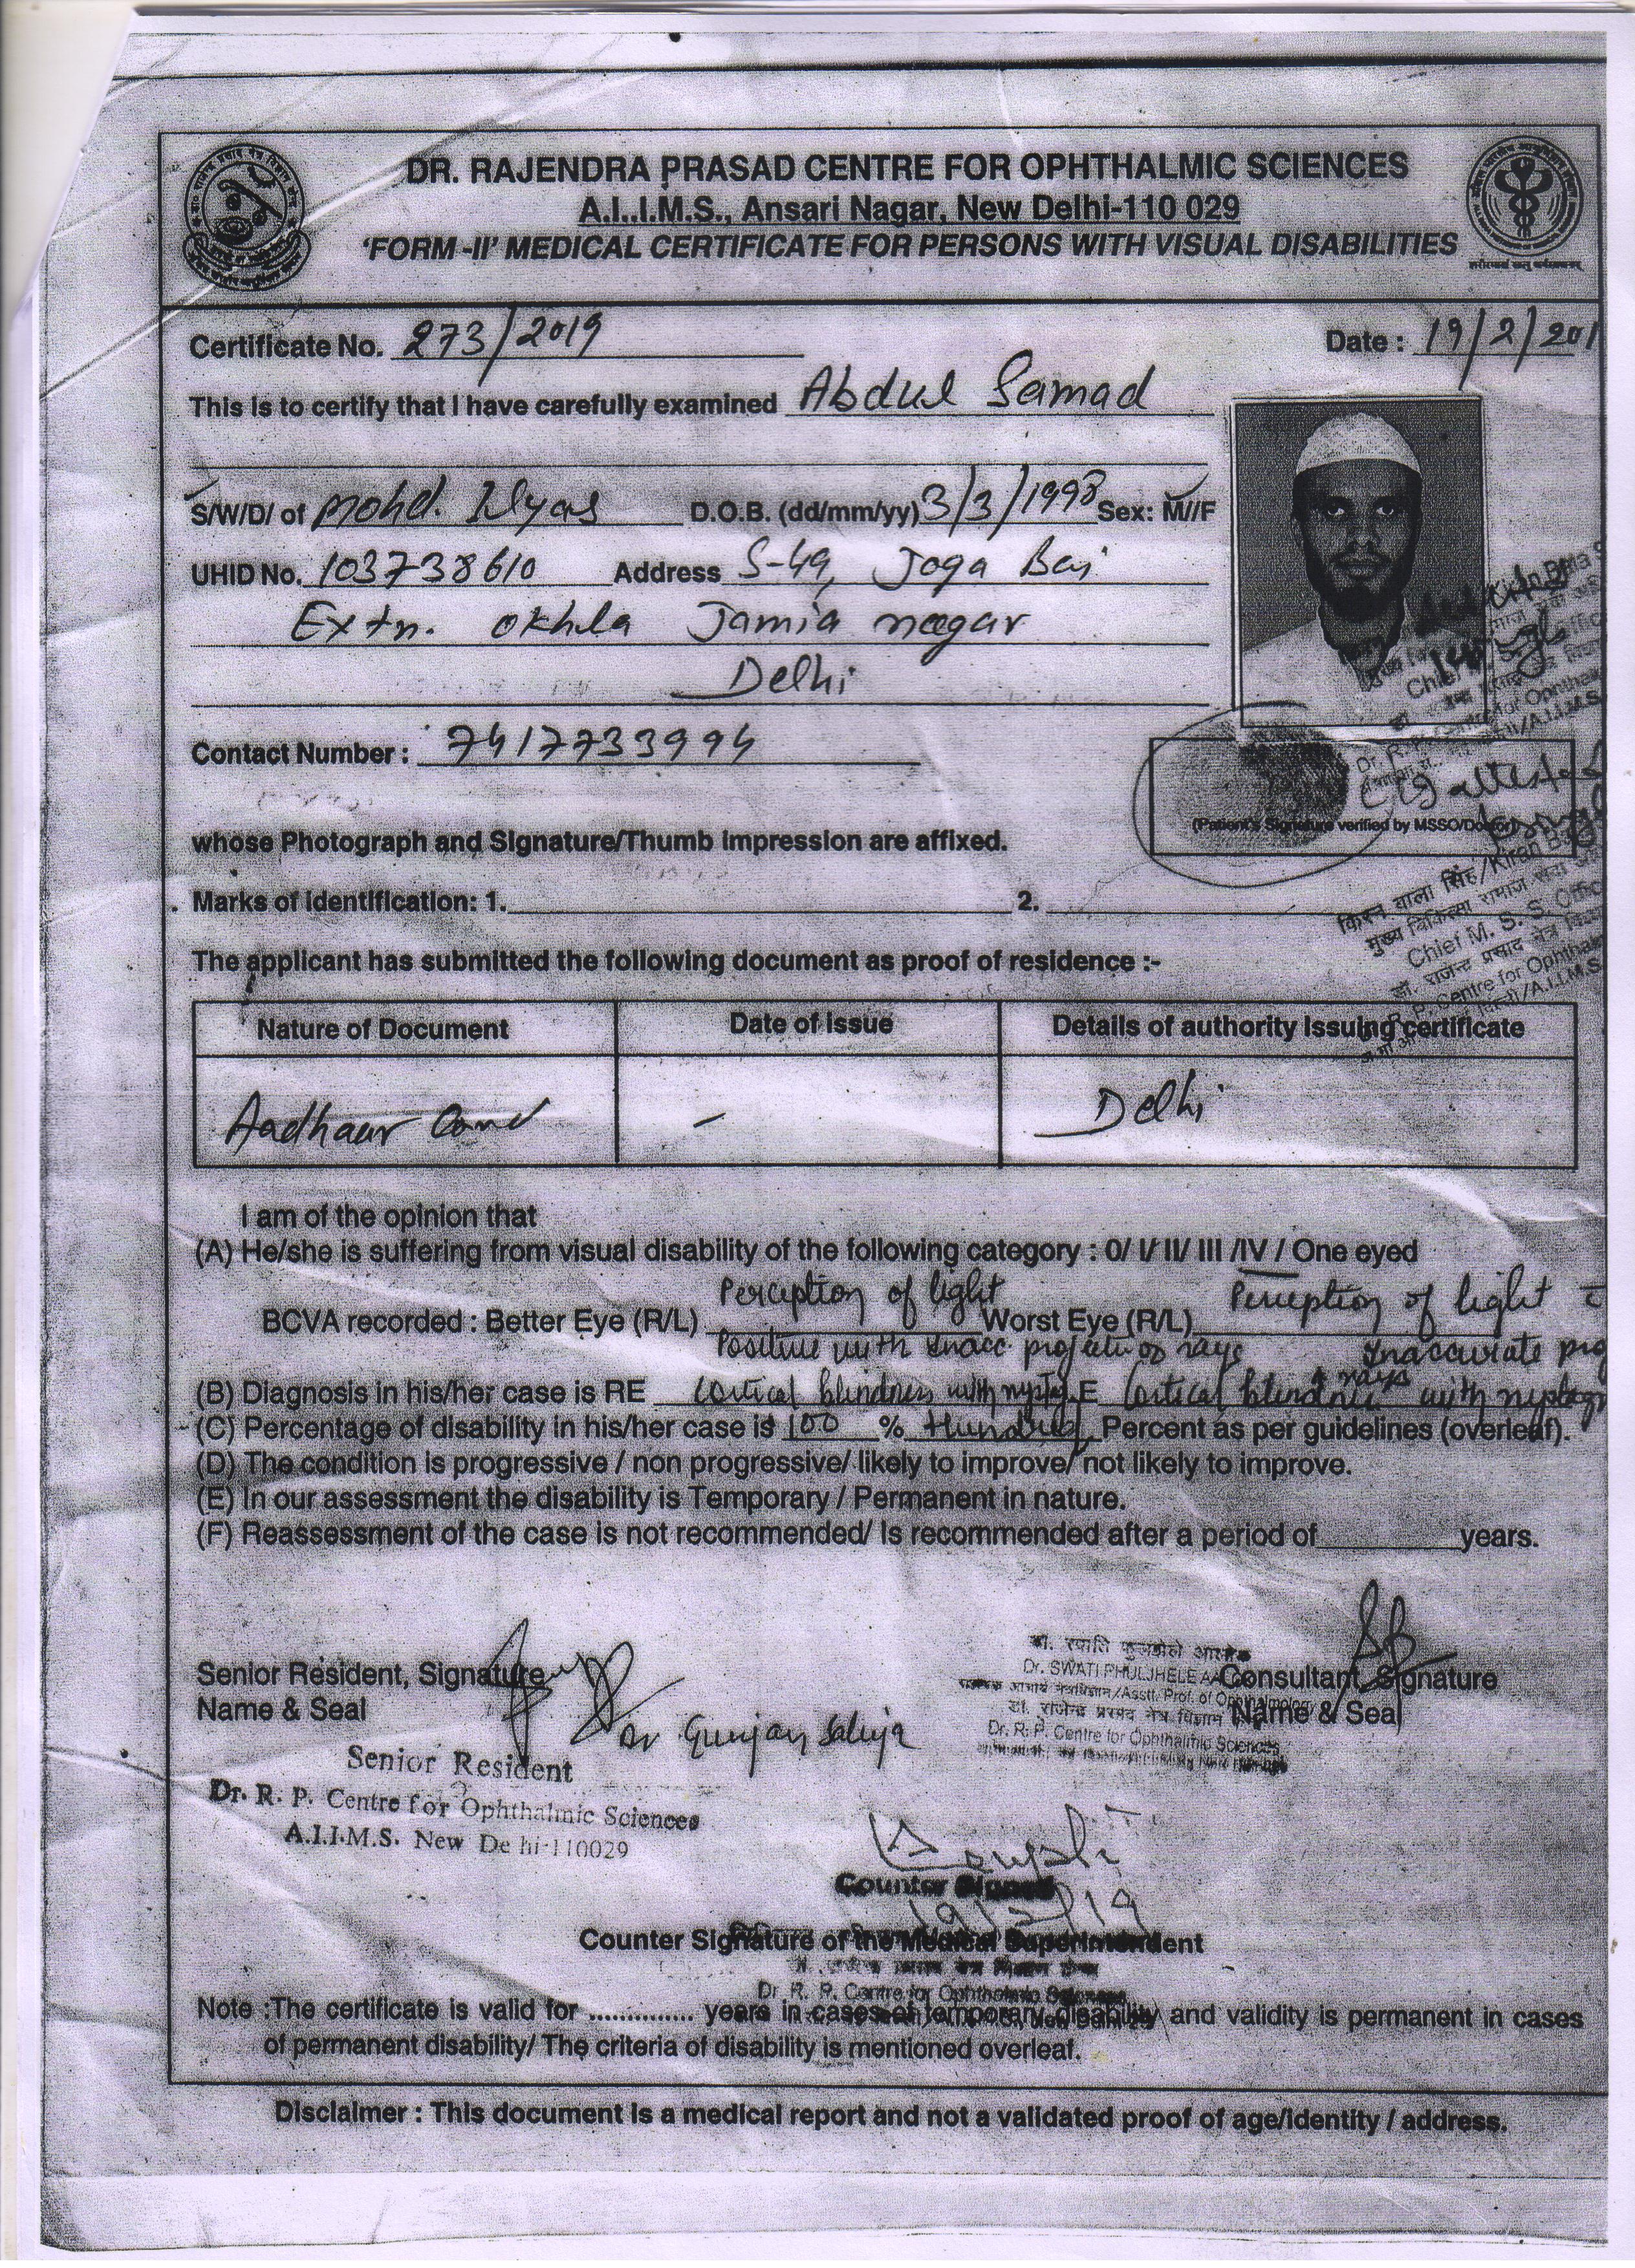 DR. RAJENDRA PRASAD CENTRE FOR OPHTHALMIC SCIENCES
A.I..I.M.S., Ansari Nagar, New Delhi-110 029
'FORM -II' MEDICAL CERTIFICATE FOR PERSONS WITH VISUAL DISABILITIES
Certificate No. 273/2019 Date : 19/2/201
This is to certify that I have carefully examined Abdul Samad
S/W/D/ of Mohd. Ilyas D.O.B. (dd/mm/yy) 3/3/1998 Sex: M//F
UHID No. 103738610 Address S-49, Joga Bai
Extn. Okhla Jamia nagar
Delhi
Contact Number : 7417733994
(Patient's Signature verified by MSSO/Doctor)
whose Photograph and Signature/Thumb impression are affixed.
Marks of identification: 1. 2.
किरन बाला सिंह/Kiran
Chief M. S. S. Offic
The applicant has submitted the following document as proof of residence :-
Nature of Document Date of Issue Details of authority issuing certificate
Aadhaar Card - Delhi
I am of the opinion that
(A) He/she is suffering from visual disability of the following category : 0/ I/ II/ III /IV / One eyed
Perception of light Perception of light
BCVA recorded : Better Eye (R/L) Worst Eye (R/L)
Positive with inacc projection of rays Inaccurate pro
rays
(B) Diagnosis in his/her case is RE Cortical blindness with nystag LE Cortical blindness with nystag
(C) Percentage of disability in his/her case is 100 % Hundred Percent as per guidelines (overleaf).
(D) The condition is progressive / non progressive/ likely to improve/ not likely to improve.
(E) In our assessment the disability is Temporary / Permanent in nature.
(F) Reassessment of the case is not recommended/ Is recommended after a period of years.
Dr. SWATI PHULJHELE
Senior Resident, Signature Consultant, Signature
/Asstt. Prof. of Ophthalmology
Name & Seal Name & Seal
Dr Gunjan Saluja
Dr. R. P. Centre for Ophthalmic Sciences
Senior Resident
Dr. R. P. Centre for Ophthalmic Sciences
A.I.I.M.S. New De hi-110029
Counter Signed
19/2/19
Counter Signature of the Medical Superintendent
Dr. R. P. Centre for Ophthalmic Sciences
Note :The certificate is valid for .............. years in cases of temporary disability and validity is permanent in cases
of permanent disability/ The criteria of disability is mentioned overleaf.
Disclaimer : This document is a medical report and not a validated proof of age/identity / address.